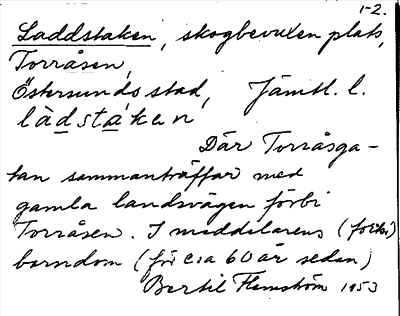 1-2.
Laddstaken, skogbevuxen plats,
Torråsen,
Östersunds stad, Jämtl. l.
làdstàken
Där Torråsga-
tan sammanträffar med
gamla landsvägen förbi
Torråsen. I meddelarens
barndom (för c:a 60 år sedan)
Bertil Flemström 1953